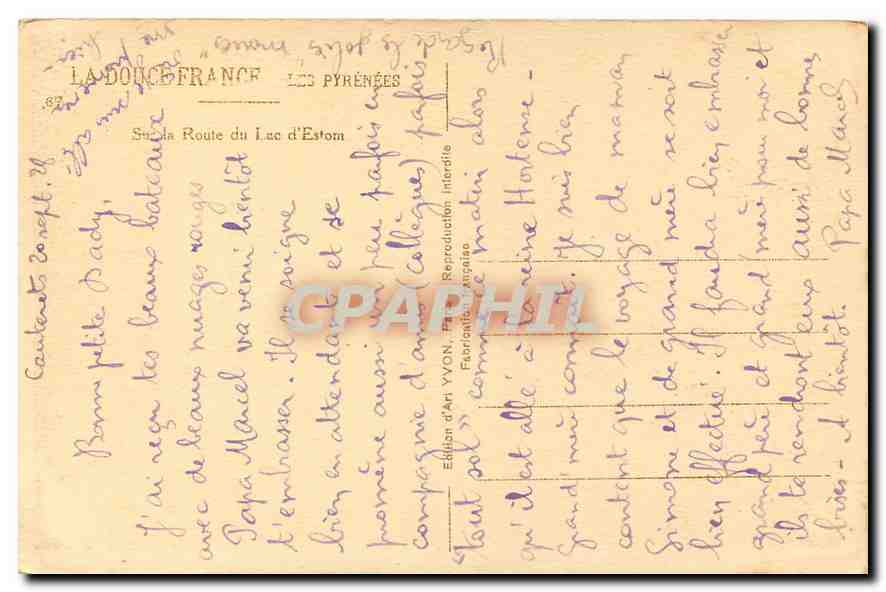 LA DOUCE FRANCE LES PYRÉNÉES
Sur la Route du Lac d'Estom
Cauterets 20 sept. 28
Bonne petite Dady,
J'ai reçu tes beaux bateaux
avec de beaux nuages rouges
Papa Marcel va venir bientôt
t'embrasser. Il se soigne
bien en attendant et se
promène aussi un peu parfois en
compagnie d'amis (collègues) parfois
"tout sol" comme ce matin alors
qu'il est allé à la reine Hortense -
grand'mère connait. Je suis bien
content que le voyage de maman
Simone et de grand mère se soit
bien effectué. Il faudra bien embrasser
grand père et grand'mère pour moi et
ils te rendront eux aussi de bonnes
bises - A bientôt. Papa Marcel
Regarde les jolies
Edition d'Art YVON, Reproduction Interdite
Fabrication Française
CPAPHIL